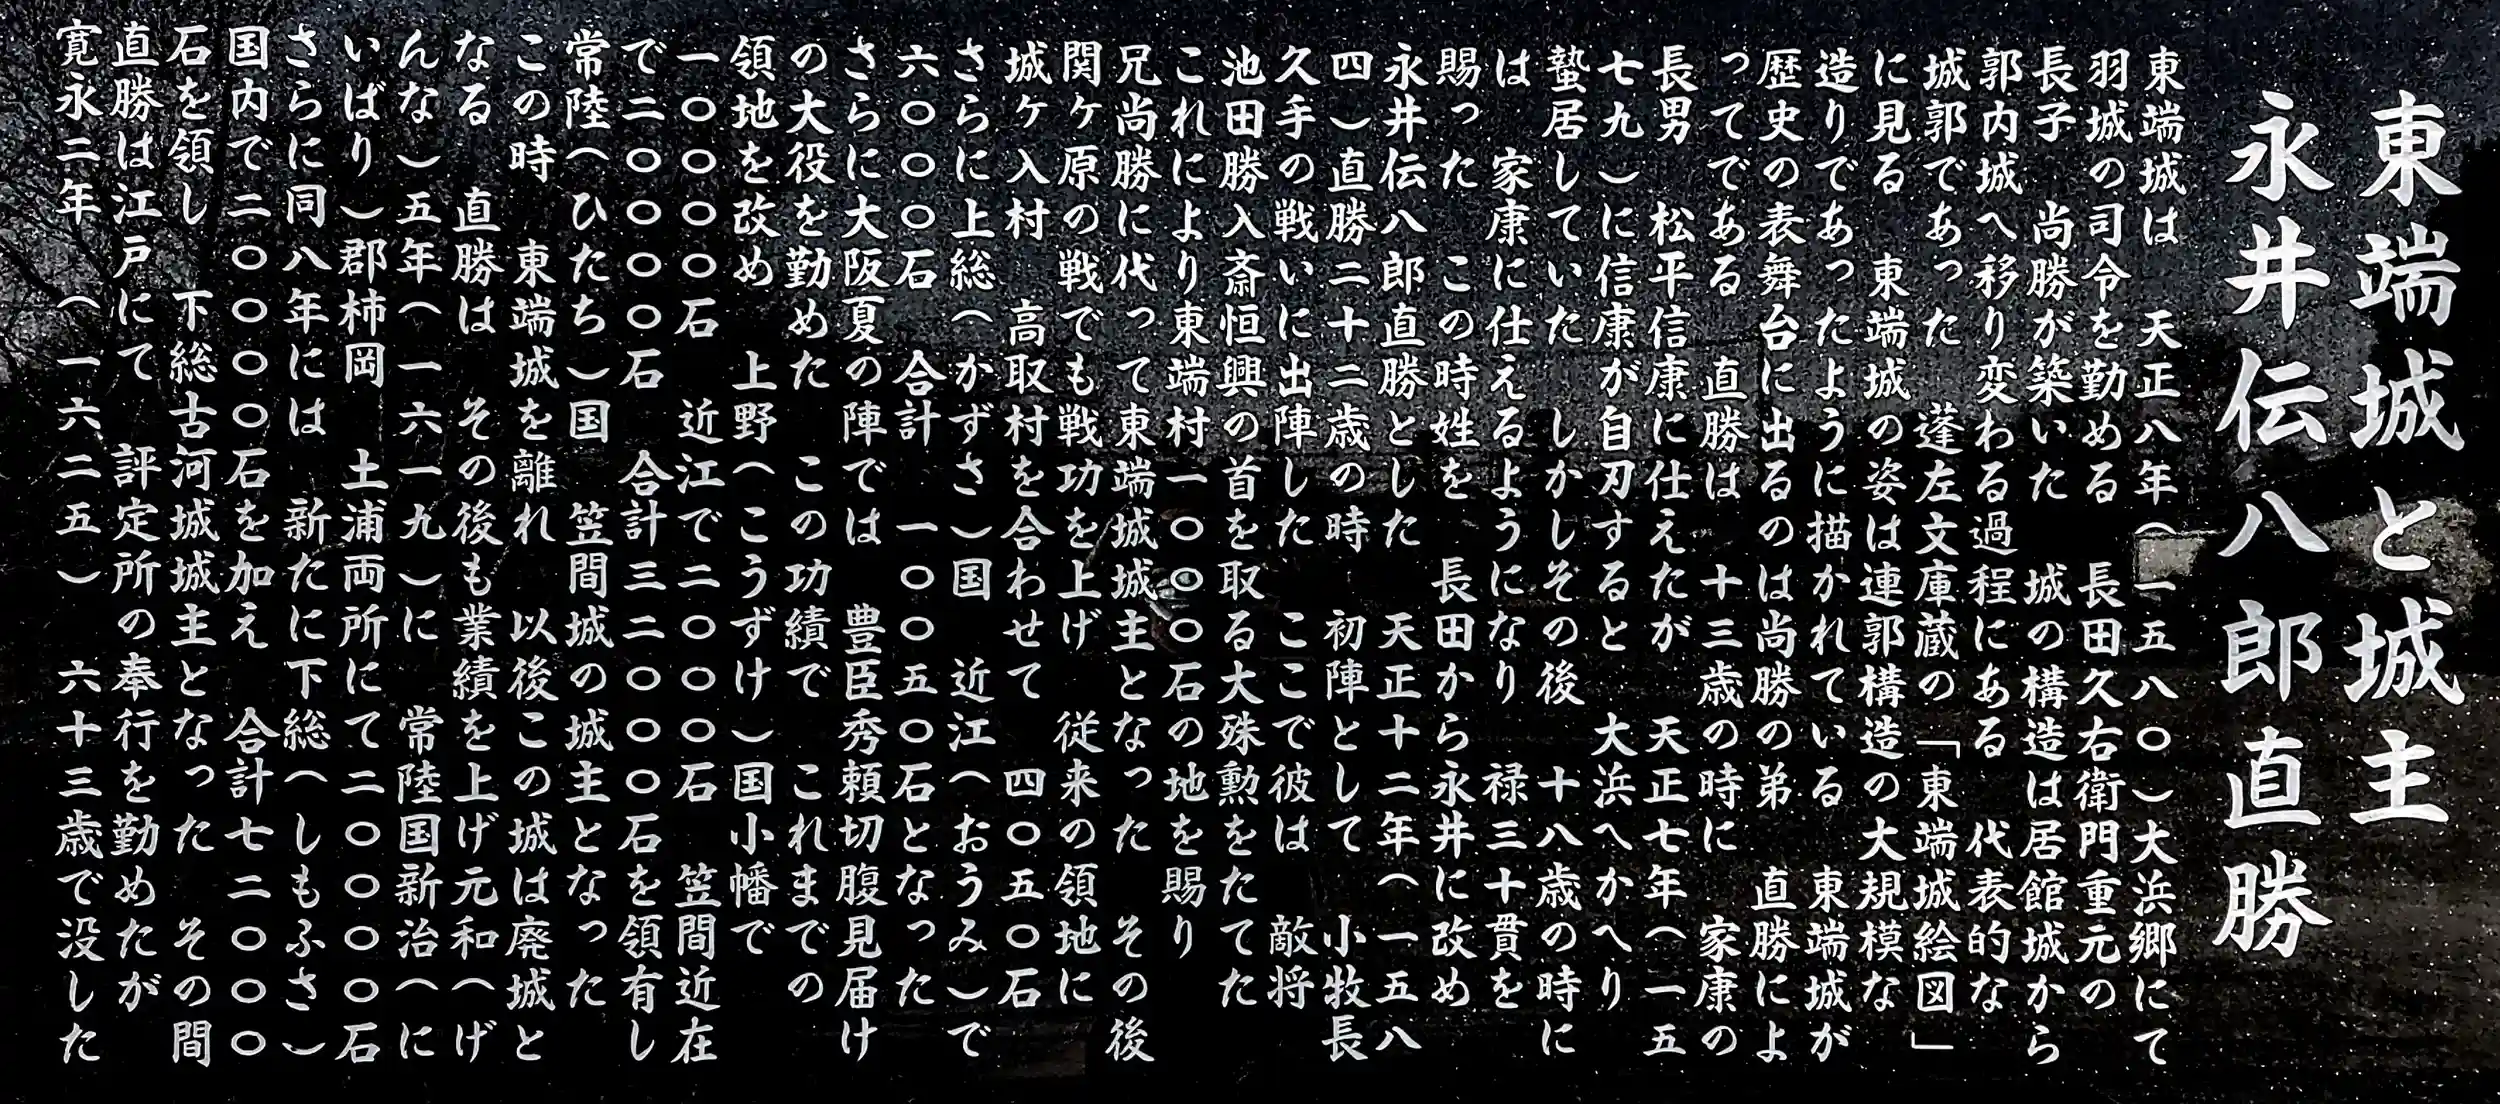 東端城と城主
永井伝八郎直勝
東端城は　天正八年（一五八〇）大浜郷にて
羽城の司令を勤める　長田久右衛門重元の
長子　尚勝が築いた　城の構造は居館城から
郭内城へ移り変わる過程にある　代表的な
城郭であった　蓬左文庫蔵の「東端城絵図」
に見る　東端城の姿は連郭構造の大規模な
造りであったように描かれている　東端城が
歴史の表舞台に出るのは尚勝の弟　直勝によ
ってである　直勝は　十三歳の時に　家康の
長男　松平信康に仕えたが　天正七年（一五
七九）に信康が自刃すると　大浜へかへり
蟄居していた　しかしその後　十八歳の時に
は　家康に仕えるようになり　禄三十貫を
賜った　この時姓を　長田から永井に改め
永井伝八郎直勝とした　天正十二年（一五八
四）直勝二十二歳の時　初陣として　小牧長
久手の戦いに出陣した　ここで彼は　敵将
池田勝入斎恒興の首を取る大殊勲をたてた
これにより東端村一〇〇〇石の地を賜り
兄尚勝に代って東端城城主となった　その後
関ヶ原の戦でも戦功を上げ　従来の領地に
城ヶ入村　高取村を合わせて　四〇五〇石
さらに上総（かずさ）国　近江（おうみ）で
六〇〇〇石　合計　一〇〇五〇石となった
さらに大阪夏の陣では　豊臣秀頼切腹見届け
の大役を勤めた　この功績で　これまでの
領地を改め　上野（こうずけ）国小幡で
一〇〇〇〇石　近江で二〇〇〇石　笠間近在
で二〇〇〇〇石　合計三二〇〇〇石を領有し
常陸（ひたち）国　笠間城の城主となった
この時　東端城を離れ　以後この城は廃城と
なる　直勝は　その後も業績を上げ元和（げ
んな）五年（一六一九）に　常陸国新治（に
いばり）郡柿岡　土浦両所にて二〇〇〇〇石
さらに同八年には　新たに下総（しもふさ）
国内で二〇〇〇〇石を加え　合計七二〇〇〇
石を領し　下総古河城城主となった　その間
直勝は江戸にて　評定所の奉行を勤めたが
寛永二年（一六二五）　六十三歳で没した